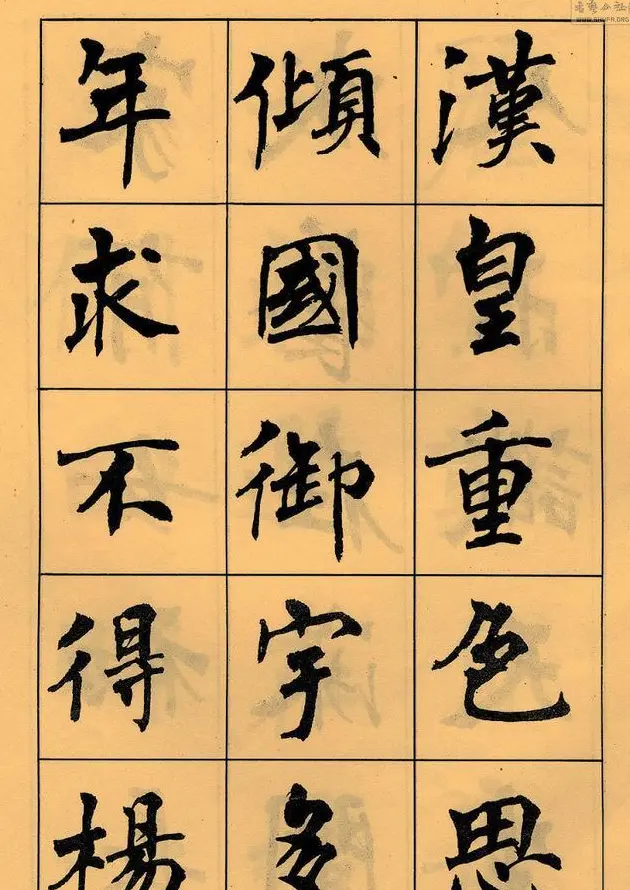 漢皇重色思
傾國御宇多
年求不得楊
WWW.SHUFA.ORG